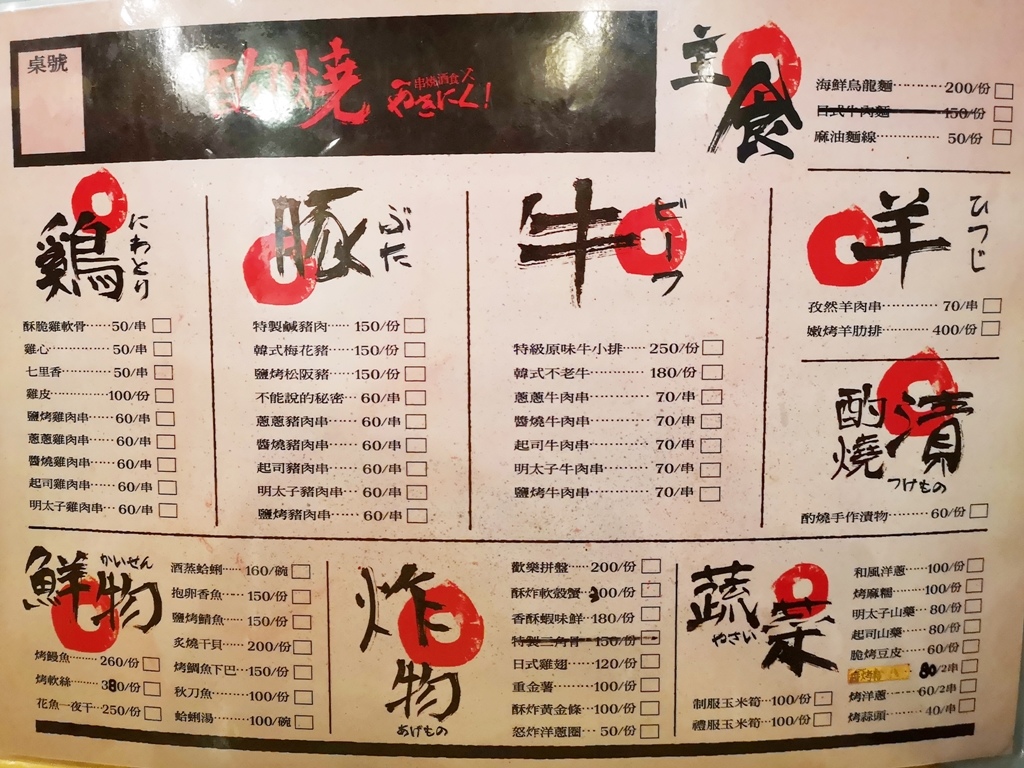 桌號
酌燒
串燒酒食人
やきにく!
主食
海鮮烏龍麵 200/份
日式牛肉麵 150/份
麻油麵線 50/份
鷄
にわとり
酥脆雞軟骨 50/串
雞心 50/串
七里香 50/串
雞皮 100/份
鹽烤雞肉串 60/串
蔥蔥雞肉串 60/串
醬燒雞肉串 60/串
起司雞肉串 60/串
明太子雞肉串 60/串
豚
ぶた
特製鹹豬肉 150/份
韓式梅花豬 150/份
鹽烤松阪豬 150/份
不能說的秘密 60/串
蔥蔥豬肉串 60/串
醬燒豬肉串 60/串
起司豬肉串 60/串
明太子豬肉串 60/串
鹽烤豬肉串 60/串
牛
ビーフ
特級原味牛小排 250/份
韓式不老牛 180/份
蔥蔥牛肉串 70/串
醬燒牛肉串 70/串
起司牛肉串 70/串
明太子牛肉串 70/串
鹽烤牛肉串 70/串
羊
ひつじ
孜然羊肉串 70/串
嫩烤羊肋排 400/份
酌燒漬
つけもの
酌燒手作漬物 60/份
鮮物
かいせん
烤鰻魚 260/份
烤軟絲 380/份
花魚一夜干 250/份
酒蒸蛤蜊 160/碗
抱卵香魚 150/份
鹽烤鯖魚 150/份
炙燒干貝 200/份
烤鯛魚下巴 150/份
秋刀魚 100/份
蛤蜊湯 100/碗
炸物
あげもの
歡樂拼盤 200/份
酥炸軟殼蟹 200/份
香酥蝦味鮮 180/份
特製三角骨 150/份
日式雞翅 120/份
重金薯 100/份
酥炸黃金條 100/份
怒炸洋蔥圈 50/份
蔬菜
やさい
制服玉米筍 100/份
禮服玉米筍 100/份
和風洋蔥 100/份
烤麻糬 100/份
明太子山藥 80/份
起司山藥 80/份
脆烤豆皮 60/份
80/2串
烤洋蔥 60/2串
烤蒜頭 40/串